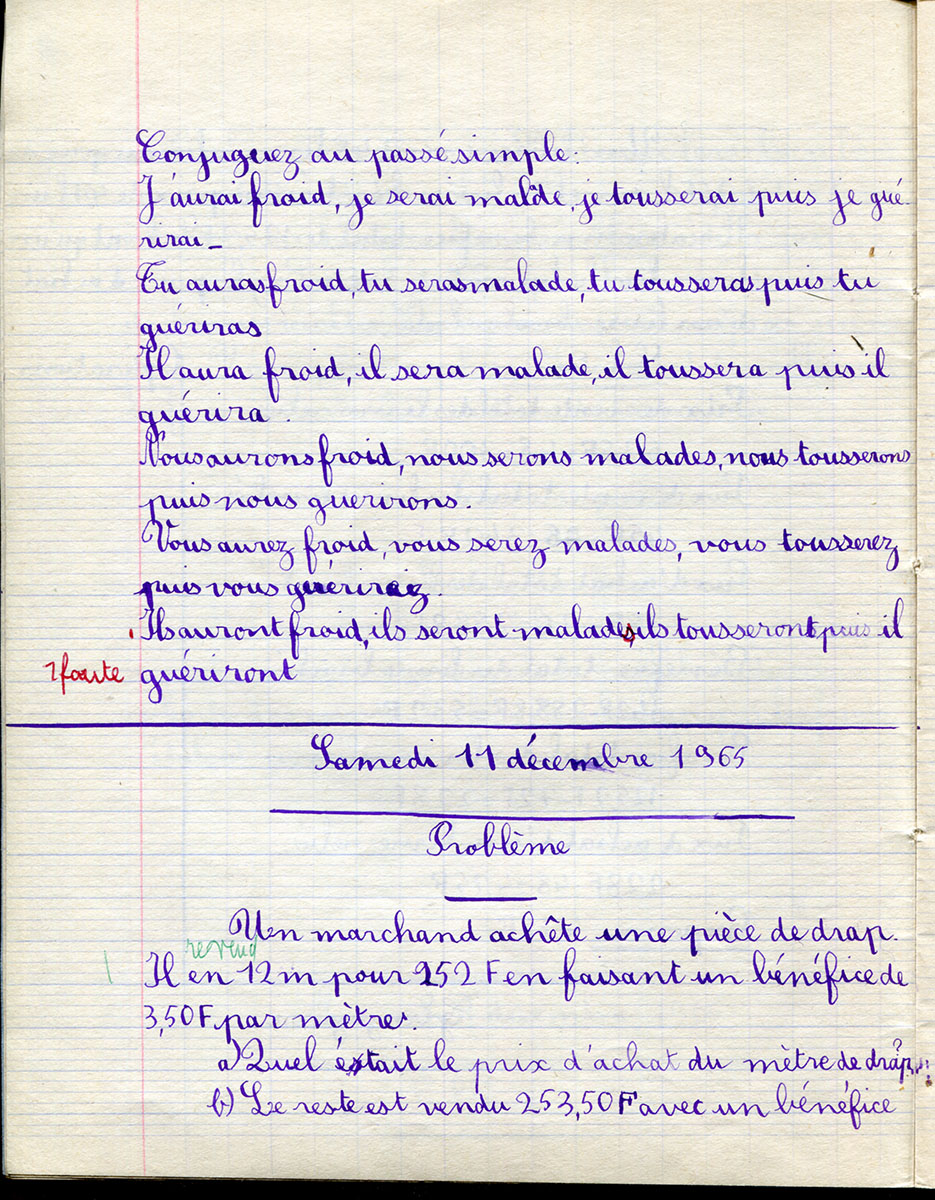 Conjuguez au passé simple:
J'aurai froid, je serai malde, je tousserai puis je gué
rirai_
Tu auras froid, tu seras malade, tu tousseras puis tu
guériras
Il aura froid, il sera malade, il toussera puis il
guérira.
Nous aurons froid, nous serons malades, nous tousserons
puis nous guerirons.
Vous aurez froid, vous serez malades, vous tousserez
puis vous guérirez.
Ils auront froid, ils seront malades, ils tousseront puis il
1 faute guériront
Samedi 11 décembre 1965
Problème
Un marchand achête une pièce de drap.
revend
Il en 12 m pour 252 F en faisant un bénéfice de
3,50 F par mètre.
a) Quel était le prix d'achat du mètre de drap?
b) Le reste est vendu 253,50 F avec un bénéfice